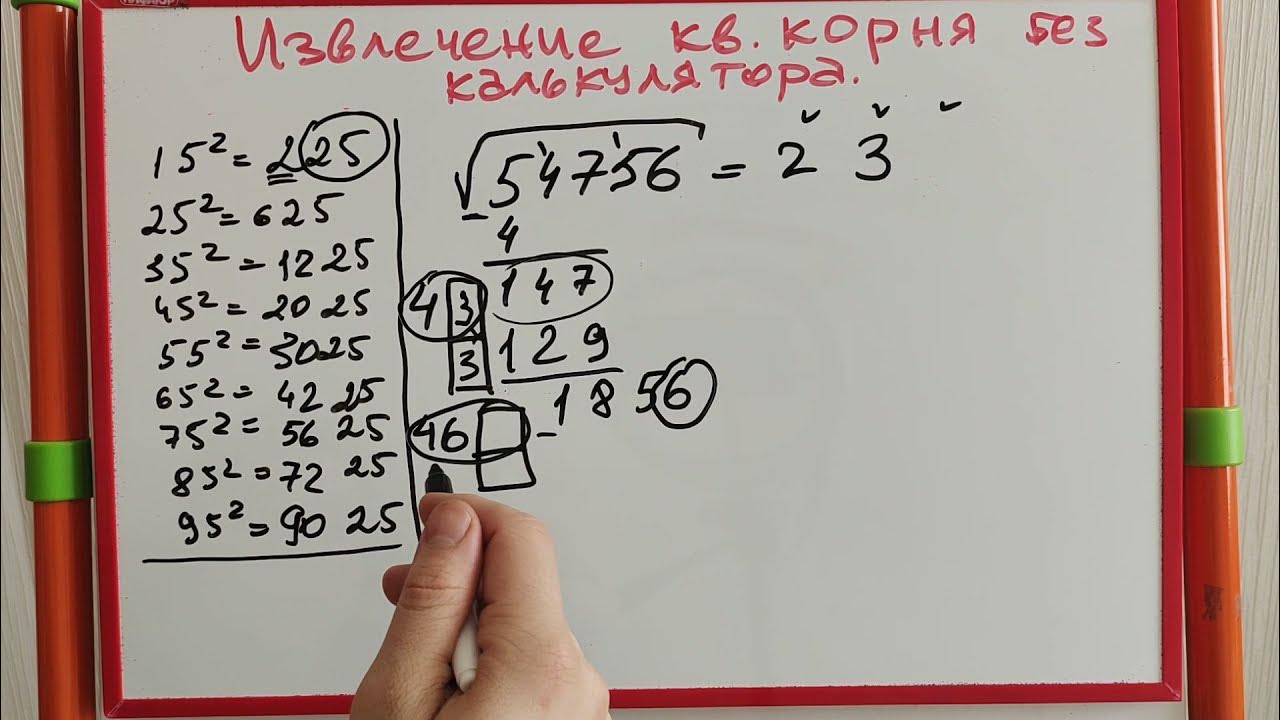 Извлечение кв. корня без
калькулятора.
15² = 225
25² = 625
35² = 1225
45² = 2025
55² = 3025
65² = 4225
75² = 5625
85² = 7225
95² = 9025
√54'75'6 = 2 3
4
43 147
3 129
46 - 1856